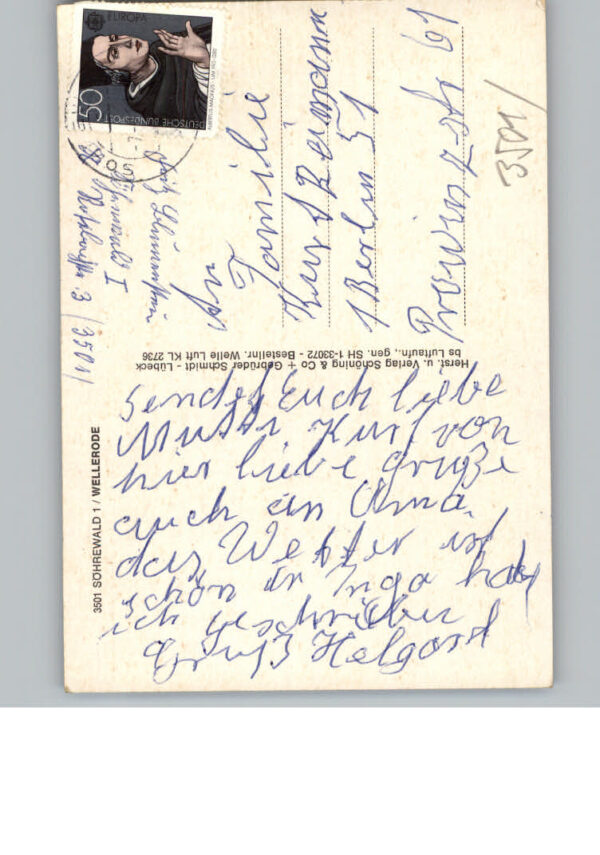 EUROPA
50
DEUTSCHE BUNDESPOST
ALBERTUS MAGNUS
3501/
An
Familie
Kurt Reimann
1 Berlin 51
Provinzstr 61
I
3 (3501)
Herst. u. Verlag Schöning & Co + Gebrüder Schmidt - Lübeck
bs Luftaufn., gen. SH 1-33072 - Bestellnr. Welle Luft KL 2736
3501 SÖHREWALD 1 / WELLERODE
Sendet Euch liebe
Mutti Kurt von
hier liebe grüße
auch an Oma.
das Wetter ist
schön an Inga hab
ich geschrieben
Gruß Helgard